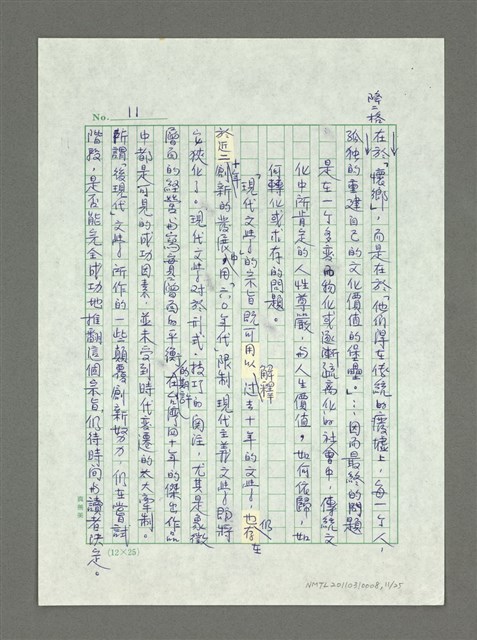 No. 11
降二格
在於「懷鄉」，而是在於「他們得在傳統的廢墟上，每一个人，
孤独的重建自己的文化價值的堡壘。……因而最終的問題
是在一个多變而物化或逐漸疏离化的社會中，傳統文
化中所肯定的人性尊嚴，与人生價值，如何依歸，如
何轉化或求存的問題。
「現代文學」的宗旨既可用以解釋過去十年的文學，也仍在
於近二十年創新的發展中，用「六〇年代」限制現代主義文學，即將
它狹化！。現代文學對於形式、技巧的関注，尤其是象徵
層面的經營与寫實層面的平衡，在台灣四十年的傑出作品
的期許
中都是可見的成功因素，並未受到時代變遷的太大牽制。
所謂「後現代」文學所作的一些顛覆創新努力，仍在嘗試
階段，是否能完全成功地推翻這個宗旨，仍待時間与讀者決定。
(12×25)
NMTL20110310008,11/25